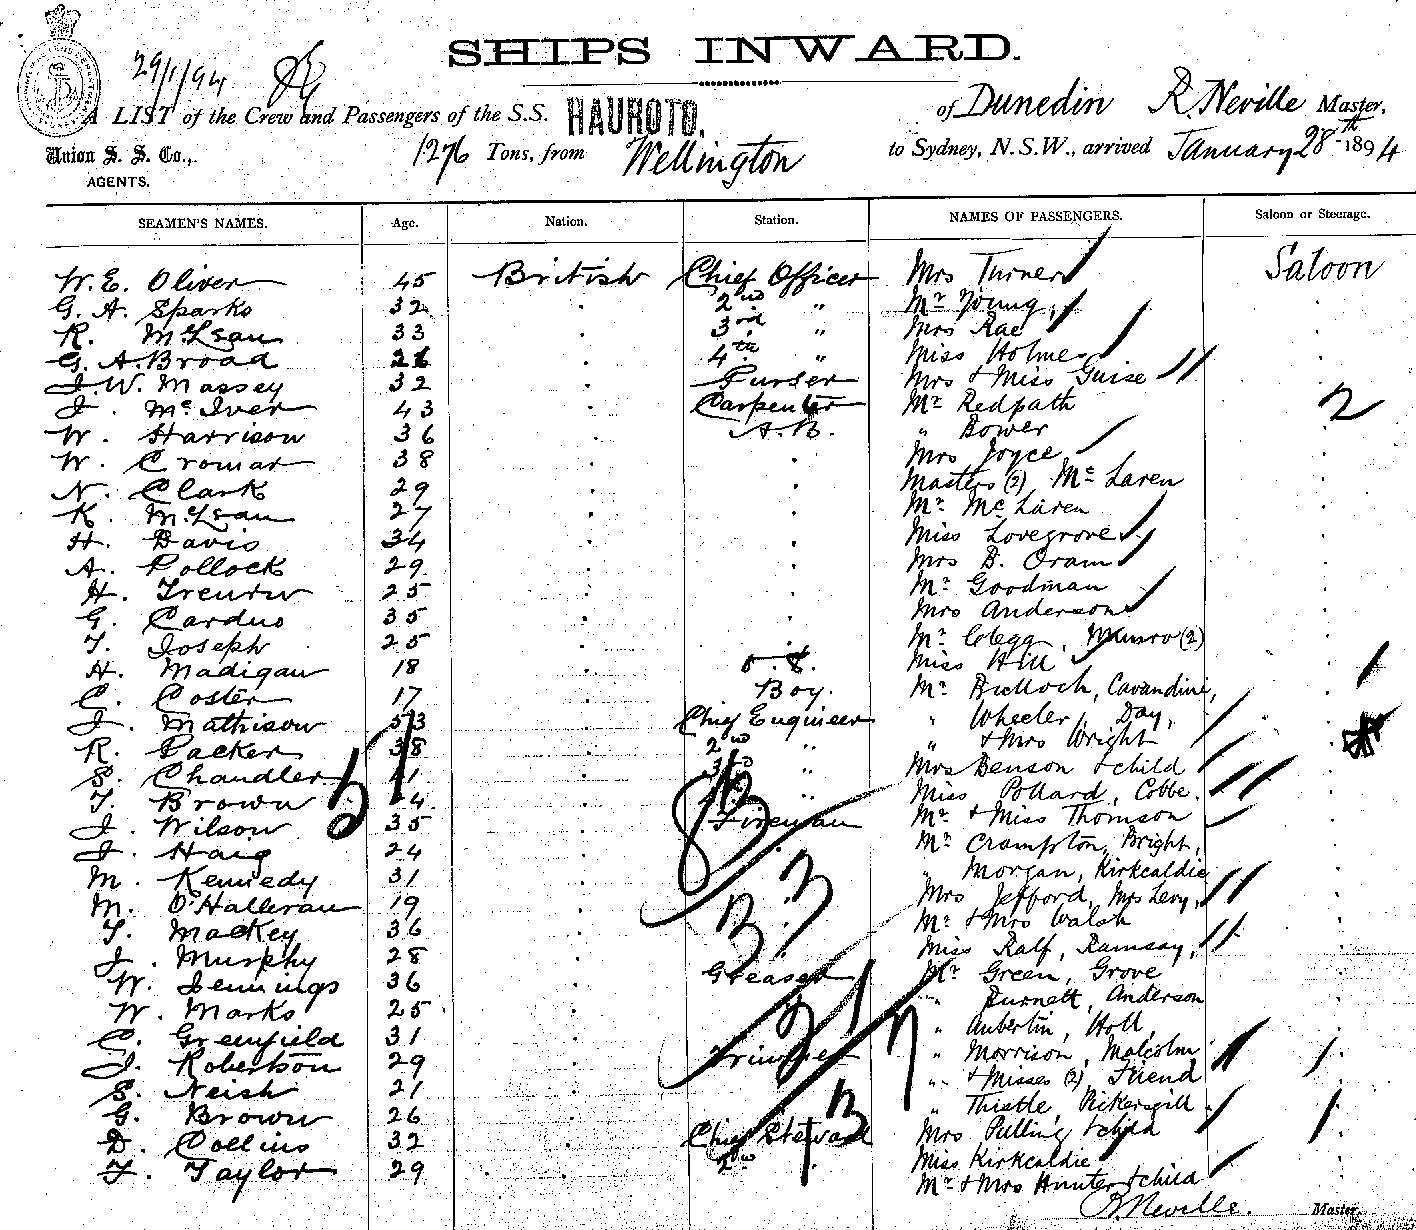 SHIPS INWARD.
29/1/94
A LIST of the Crew and Passengers of the S.S. HAUROTO, of Dunedin R. Neville Master,
Union S. S. Co., 1276 Tons, from Wellington to Sydney, N.S.W., arrived January 28th 1894
AGENTS.
SEAMEN'S NAMES. Age. Nation. Station. NAMES OF PASSENGERS. Saloon or Steerage.
W. E. Oliver 45 British Chief Officer Mrs Turner Saloon
G. A. Sparks 32 2nd " Mr Young,
R. McLean 33 3rd " Mrs Rae
G. A. Broad 4th " Miss Holmes
J. W. Massey 32 Purser Mrs & Miss Guise
J. McIver 43 Carpenter Mr Redpath 2
W. Harrison 36 A.B. " Bower
W. Cromar 38 Mrs Joyce
N. Clark 29 Masters (2) McLaren
K. McLean 27 Mr McLaren
H. Davis 34 Miss Lovegrove
A. Pollock 29 Mrs D. Oram
H. 25 Mr Goodman
G. Cardno 35 Mrs Anderson
T. Joseph 25 Mr Clegg, Munro (2)
H. Madigan 18 Miss Hill
C. Coster 17 Boy. Mr Bulloch, Cavandine,
J. Mathison 53 Chief Engineer " Wheeler, Day,
R. Packer 38 2nd " " & Mrs Wright
S. Chandler 41 3rd " Mrs Benson & child
T. Brown " Miss Pollard, Cobbe.
J. Wilson 35 Fireman Mr & Miss Thomson
J. Haig 24 Mr Crampton, Bright,
M. Kennedy 31 " Morgan, Kirkcaldie
M. O'Halleran 19 Mrs Jefford, Mrs Levy,
T. Mackey 36 Mr & Mrs Walsh
J. Murphy 28 Miss Ralf, Ramsay,
W. Jennings 36 Greaser Mr Green, Grove
W. Marks 25 " Burnett, Anderson
C. Greenfield 31 " Aubertin, Holl,
J. Robertson 29 Trimmer " Morrison, Malcolm
S. Neish 21 " & Misses (2) Friend
G. Brown 26 " Thistle, Pickersgill
D. Collins 32 Chief Steward Mrs Pulling & child
F. Taylor 29 2nd Miss Kirkcaldie
Mr & Mrs Hunter & child
R. Neville. Master.